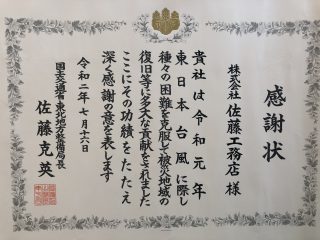 感謝状
株式会社 佐藤工務店 様
貴社は令和元年
東日本台風に際し
種々の困難を克服して被災地域の
復旧等に多大な貢献をされました
ここにその功績をたたえ
深く感謝の意を表します
令和二年七月十六日
国土交通省東北地方整備局長
佐藤克英